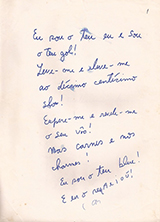 1
Eu sou o teu eu e sou
o teu gol!
Leve-me e eleve-me
ao décimo centésimo
show!
Espere-me e revele-me
o seu vôo!
Mas carnes e nos
charmes!
Eu sou o teu blue!
E eu o